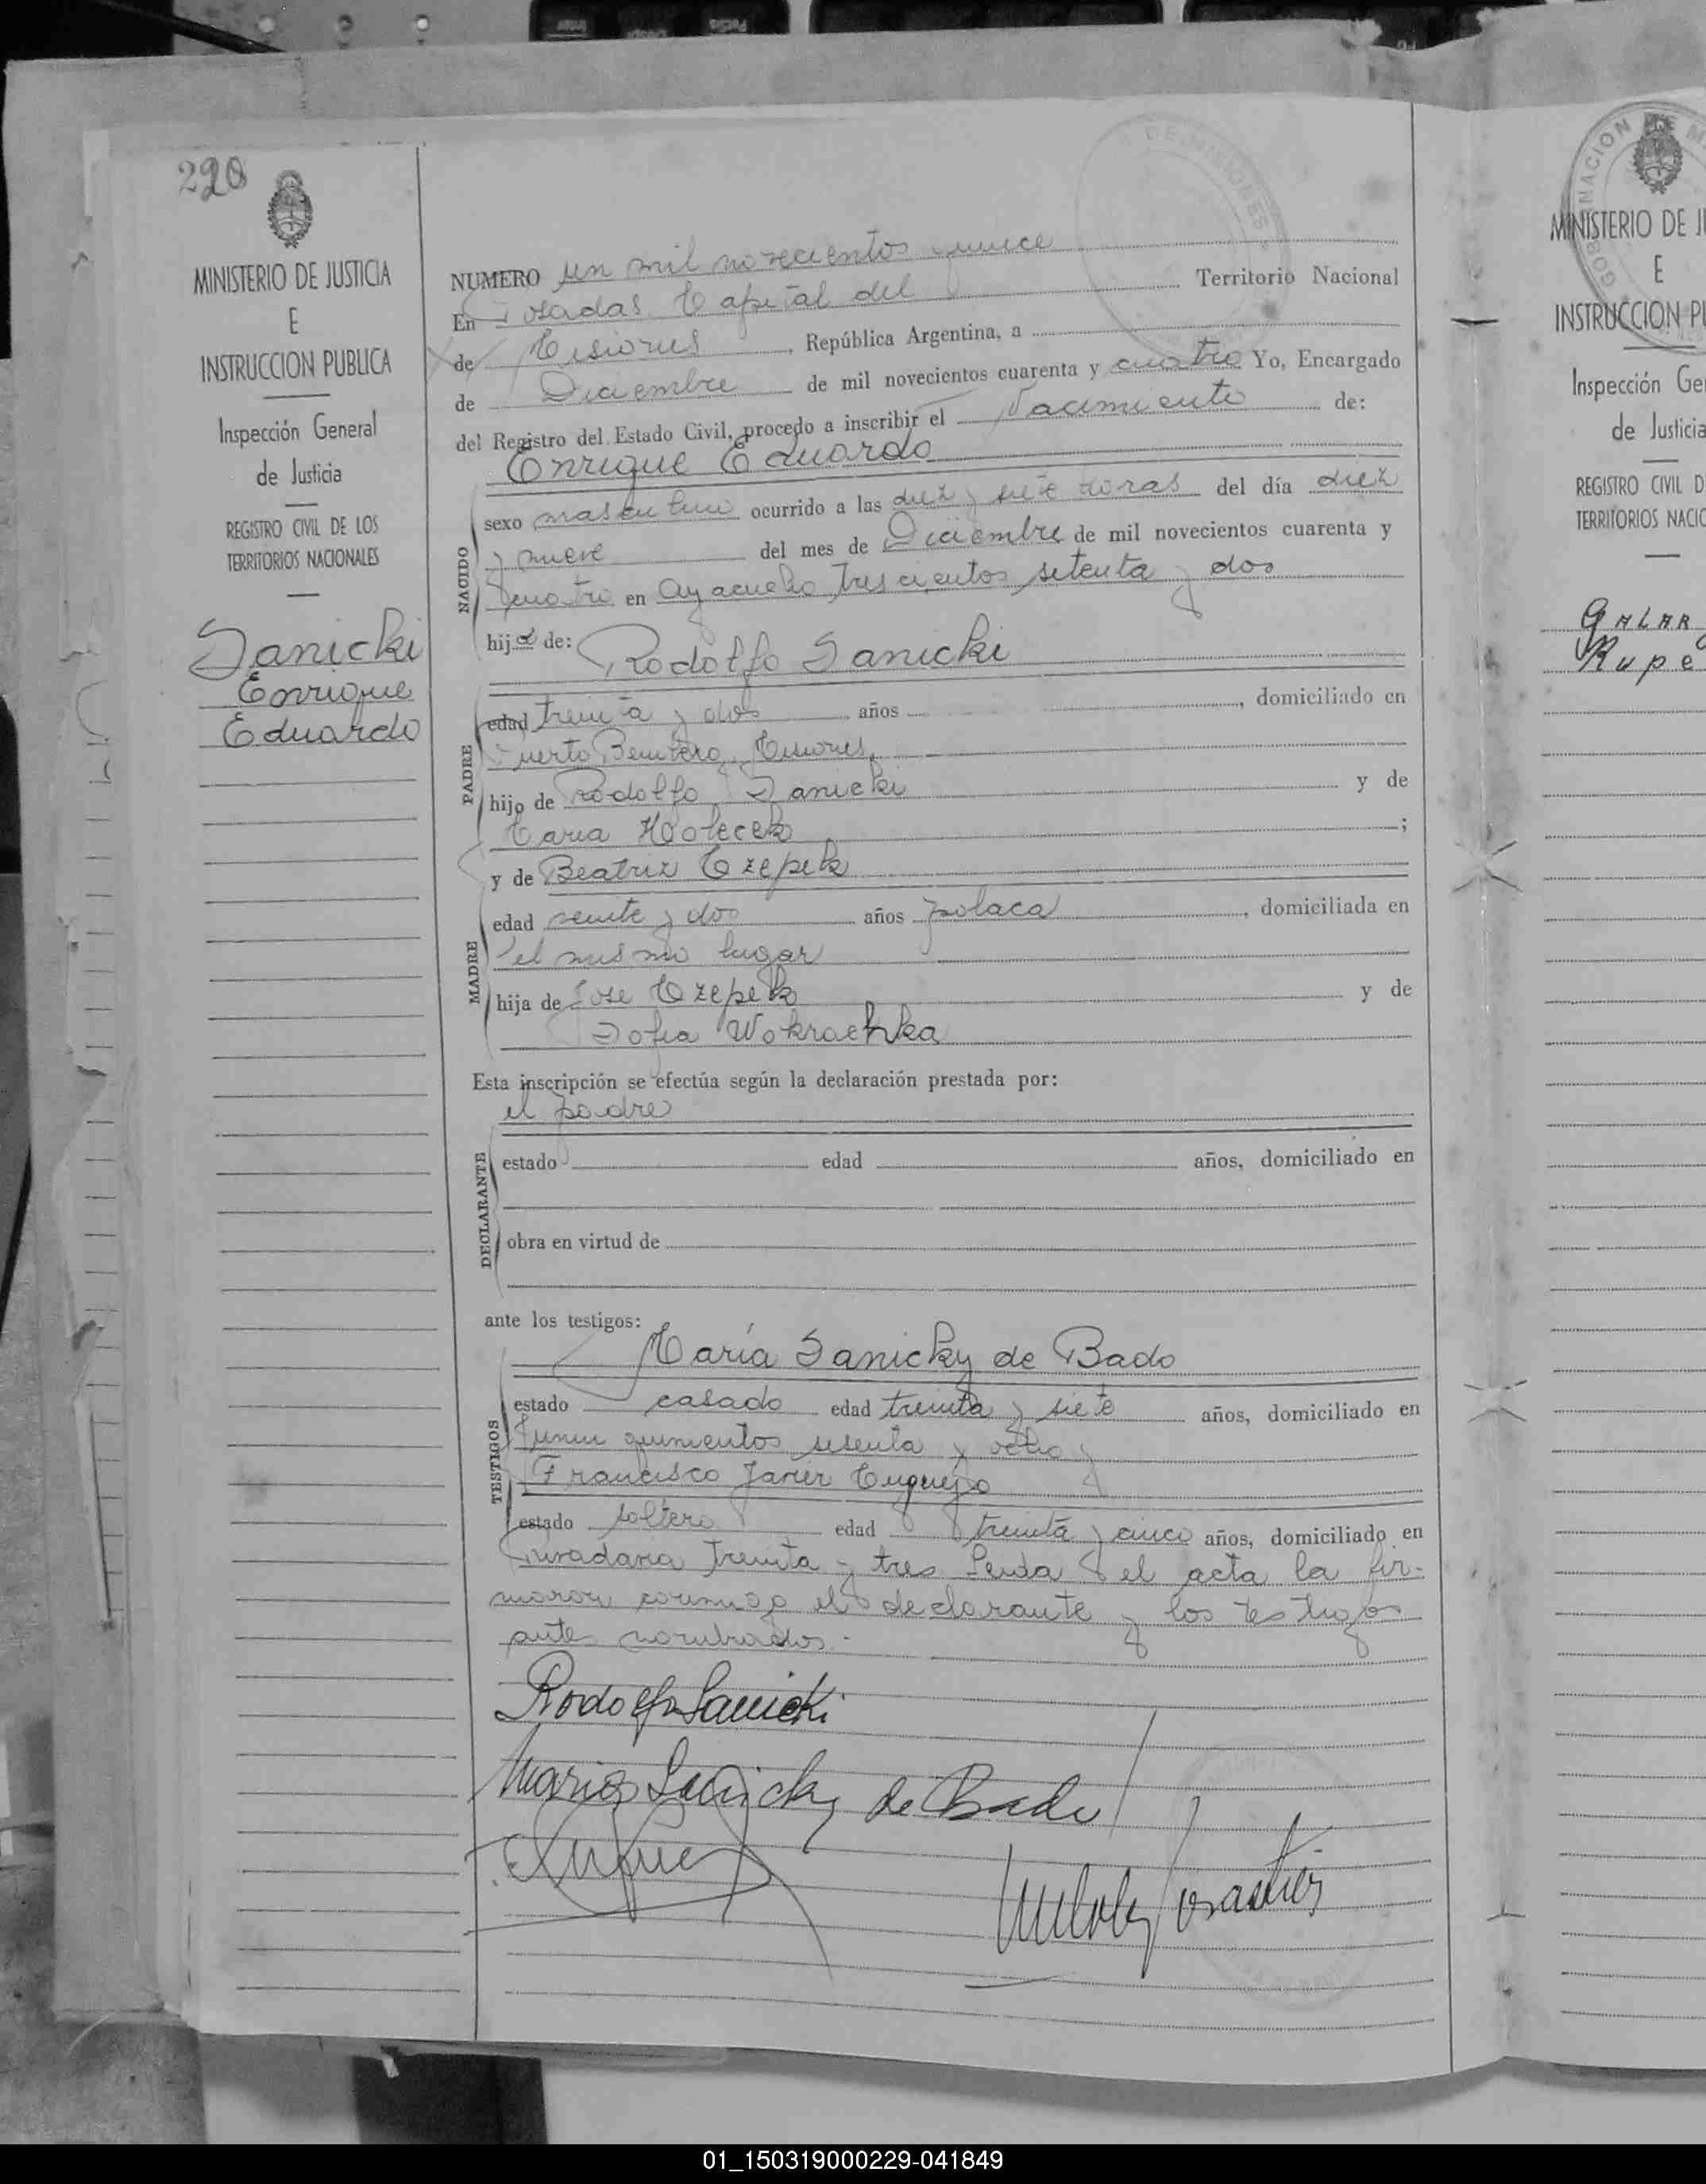 220
MINISTERIO DE JUSTICIA
E
INSTRUCCION PUBLICA
Inspección General
de Justicia
REGISTRO CIVIL DE LOS
TERRITORIOS NACIONALES
Sanicki
Enrique
Eduardo
DE MISIONES
NUMERO un mil novecientos quince
En Posadas Capital del Territorio Nacional
de Misiones, República Argentina, a
de Diciembre de mil novecientos cuarenta y cuatro Yo, Encargado
del Registro del Estado Civil, procedo a inscribir el Nacimiento de:
Enrique Eduardo
NACIDO
sexo masculino ocurrido a las diez y siete horas del día diez
y nueve del mes de Diciembre de mil novecientos cuarenta y
cuatro en Ayacucho trescientos setenta y dos
hijo de: Rodolfo Sanicki
PADRE
edad treinta y dos años, domiciliado en
Puerto Bemberg, Misiones,
hijo de Rodolfo Sanicki y de
Maria Holecek;
y de Beatriz Czepek
MADRE
edad veinte y dos años polaca, domiciliada en
el mismo lugar
hija de Jose Czepek y de
Sofia Wokrachka
Esta inscripción se efectúa según la declaración prestada por:
el padre
DECLARANTE
estado edad años, domiciliado en
obra en virtud de
ante los testigos:
María Sanicky de Bado
TESTIGOS
estado casado edad treinta y siete años, domiciliado en
Junin quinientos sesenta y ocho y
Francisco Javier
estado soltero edad treinta y cinco años, domiciliado en
Rivadavia treinta y tres Leida el acta la fir-
maron conmigo el declarante y los testigos
antes nombrados.-
Rodolfo Sanicki
Maria Sanicky de Bado
MINISTERIO DE JU
E
INSTRUCCION PU
Inspección Ge
de Justicia
REGISTRO CIVIL D
TERRITORIOS NACIO
GALAR
Rupe
01_150319000229-041849